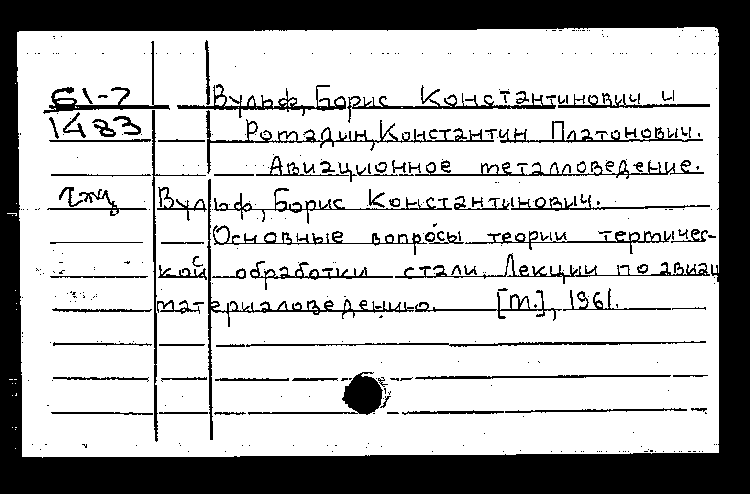 61-7 Вульф, Борис Константинович и
1483 Ромадин, Константин Платонович.
Авиационное металловедение.
Вульф, Борис Константинович.
Основные вопросы теории термичес-
кой обработки стали. Лекции по авиац
материаловедению. [М.], 1961.